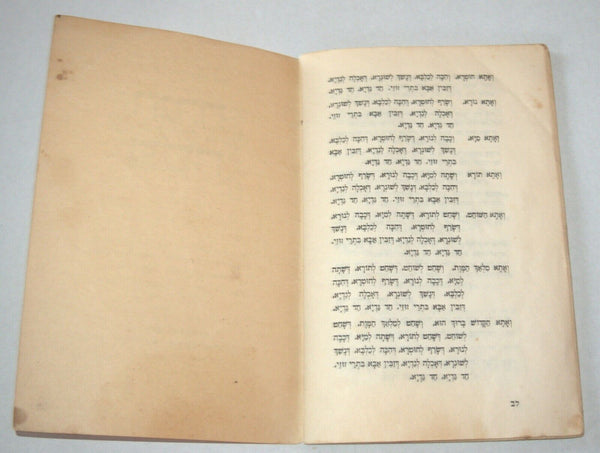 וְאָתָא חוּטְרָא. וְהִכָּה לְכַלְבָּא. וְנָשַׁךְ לְשׁוּנְרָא. וְאָכְלָה לְגַדְיָא.
דְּזַבִּין אַבָּא בִּתְרֵי זוּזֵי. חַד גַּדְיָא, חַד גַּדְיָא.
וְאָתָא נוּרָא. וְשָׂרַף לְחוּטְרָא. דְּהִכָּה לְכַלְבָּא. דְּנָשַׁךְ לְשׁוּנְרָא.
דְּאָכְלָה לְגַדְיָא. דְּזַבִּין אַבָּא בִּתְרֵי זוּזֵי.
חַד גַּדְיָא. חַד גַּדְיָא.
וְאָתָא מַיָּא. וְכָבָה לְנוּרָא. דְּשָׂרַף לְחוּטְרָא. דְּהִכָּה לְכַלְבָּא.
דְּנָשַׁךְ לְשׁוּנְרָא. דְּאָכְלָה לְגַדְיָא. דְּזַבִּין אַבָּא
בִּתְרֵי זוּזֵי. חַד גַּדְיָא. חַד גַּדְיָא.
וְאָתָא תוֹרָא. וְשָׁתָה לְמַיָּא. דְּכָבָה לְנוּרָא. דְּשָׂרַף לְחוּטְרָא.
דְּהִכָּה לְכַלְבָּא. דְּנָשַׁךְ לְשׁוּנְרָא. דְּאָכְלָה לְגַדְיָא.
דְּזַבִּין אַבָּא בִּתְרֵי זוּזֵי. חַד גַּדְיָא, חַד גַּדְיָא.
וְאָתָא הַשּׁוֹחֵט. וְשָׁחַט לְתוֹרָא. דְּשָׁתָה לְמַיָּא. דְּכָבָה לְנוּרָא.
דְּשָׂרַף לְחוּטְרָא. דְּהִכָּה לְכַלְבָּא. דְּנָשַׁךְ
לְשׁוּנְרָא. דְּאָכְלָה לְגַדְיָא. דְּזַבִּין אַבָּא בִּתְרֵי זוּזֵי.
חַד גַּדְיָא. חַד גַּדְיָא.
וְאָתָא מַלְאַךְ הַמָּוֶת. וְשָׁחַט לְשׁוֹחֵט. דְּשָׁחַט לְתוֹרָא. דְּשָׁתָה
לְמַיָּא. דְּכָבָה לְנוּרָא. דְּשָׂרַף לְחוּטְרָא. דְּהִכָּה
לְכַלְבָּא. דְּנָשַׁךְ לְשׁוּנְרָא. דְּאָכְלָה לְגַדְיָא.
דְּזַבִּין אַבָּא בִּתְרֵי זוּזֵי. חַד גַּדְיָא. חַד גַּדְיָא.
וְאָתָא הַקָּדוֹשׁ בָּרוּךְ הוּא. וְשָׁחַט לְמַלְאַךְ הַמָּוֶת. דְּשָׁחַט
לְשׁוֹחֵט. דְּשָׁחַט לְתוֹרָא. דְּשָׁתָה לְמַיָּא. דְּכָבָה
לְנוּרָא. דְּשָׂרַף לְחוּטְרָא. דְּהִכָּה לְכַלְבָּא. דְּנָשַׁךְ
לְשׁוּנְרָא. דְּאָכְלָה לְגַדְיָא. דְּזַבִּין אַבָּא בִּתְרֵי זוּזֵי.
חַד גַּדְיָא. חַד גַּדְיָא.
לב